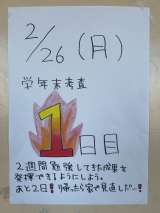 2/26（月）
学年末考査
1日目
2週間勉強してきた成果を
発揮できるようにしよう。
あと2日！帰ったら家で見直しだー！！